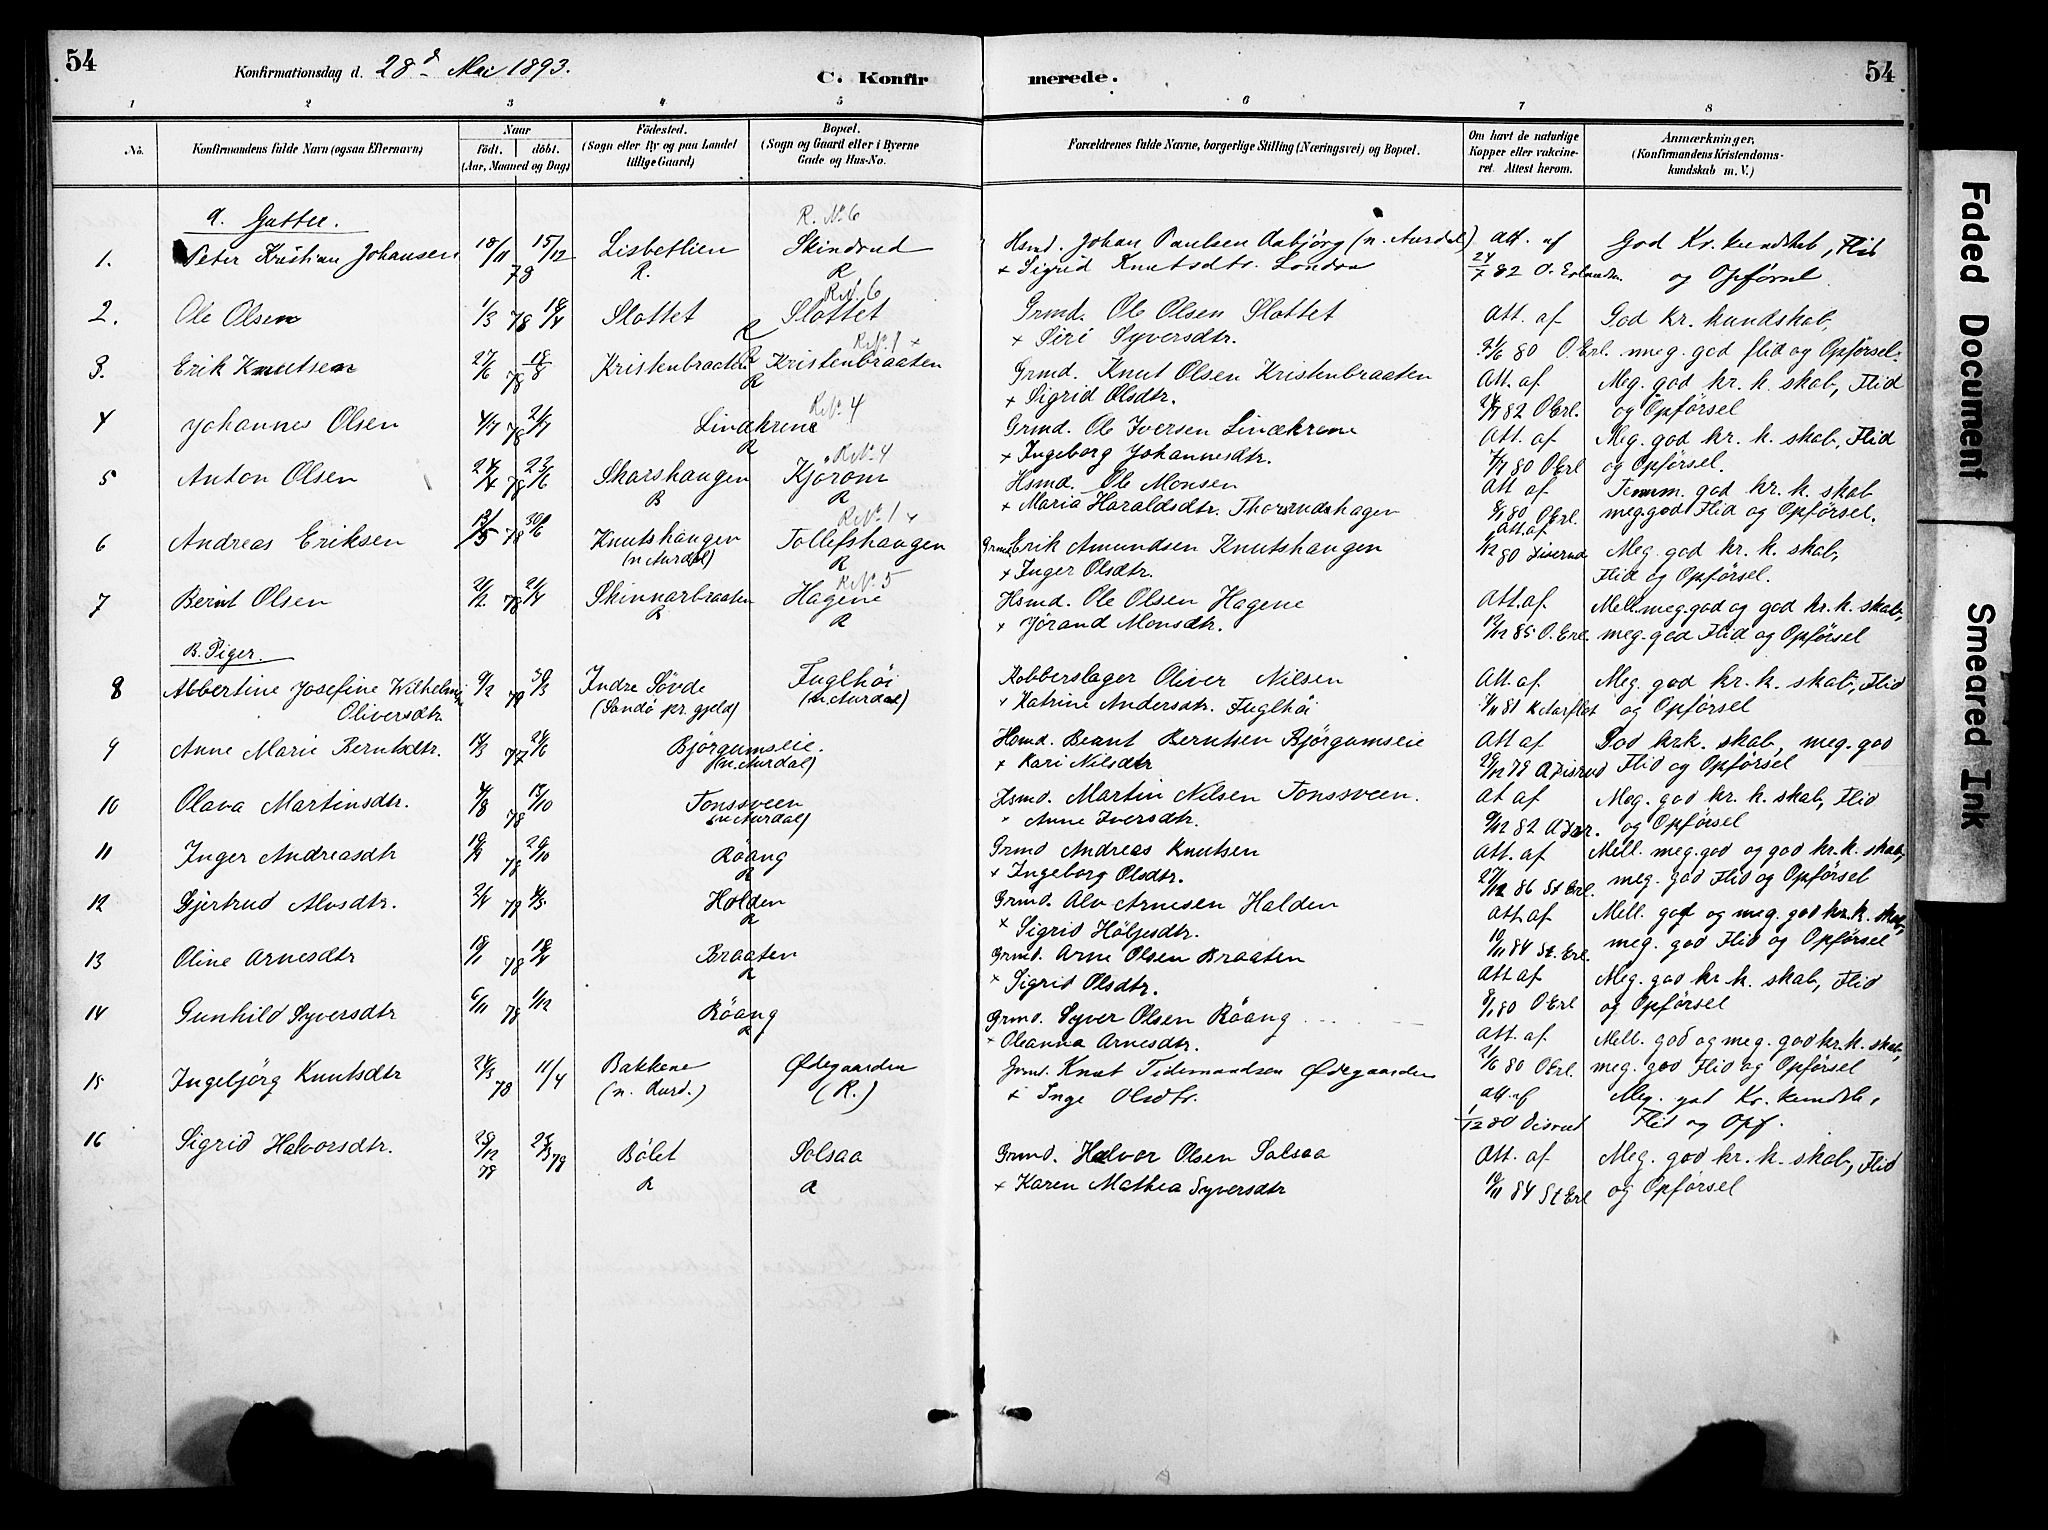 54
Konfirmationsdag d. 28d Mai 1893.
C. Konfirmerede.
54
1 2 3 4 5 6 7 8
No.
Konfirmandens fulde Navn (ogsaa Efternavn)
Naar
födt. döbt.
(Aar, Maaned og Dag)
Födested.
(Sogn eller By og paa Landet
tillige Gaard)
Bopæl.
(Sogn og Gaard eller i Byerne
Gade og Hus-No.
Forældrenes fulde Navne, borgerlige Stilling (Næringsvei) og Bopæl.
Om havt de naturlige
Kopper eller vakcine-
ret. Attest herom.
Anmærkninger,
(Konfirmandens Kristendoms-
kundskab m. V.)
a. Gutter.
R. No 6
1. Peter Kristian Johansen 18/11 78 15/12 Lisbetlien R. Skindrud R Hsmd. Johan Paulsen Aabjörg (n. Aurdal) Att. af God Kr. kundskab, Flid
+ Sigrid Knutsdtr. 24/7 82 O. Erlandsen og Opförsel.
R No. 6
2. Ole Olsen 1/3 78 18/4 Slottet Slottet R Grmd. Ole Olsen Slottet Att. af God kr. kundskab,
+ Siri Syversdtr. 80 O. Erl. meg. god flid og Opförsel.
R No. 1 +
3. Erik Knutsen 27/6 78 18/8 Kristenbraaten R Kristenbraaten R Grmd. Knut Olsen Kristenbraaten Att. af Meg. god kr. k. skab, Flid
+ Sigrid Olsdtr. 82 O Erl. og Opförsel
R No. 4
4 Johannes Olsen 4/7 78 21/7 Linækrene R Grmd. Ole Iversen Linækrene Att. af Meg. god kr. k. skab, Flid
+ Ingeborg Johannesdtr. 80 O Erl og Opförsel.
R No. 4
5 Anton Olsen 24/4 78 23/6 Skarshaugen B Kjörom R Hsmd. Ole Monsen Att af Temm. god kr. k. skab
+ Maria Haraldsdtr. Thorsrudshagen 80 O Erl. meg. god Flid og Opförsel.
R No. 1 +
6 Andreas Eriksen 13/5 78 30/6 Knutshaugen (n Aurdal) Tollefshaugen R Grmd. Erik Amundsen Knutshaugen Att. af Meg. god kr. k. skab,
+ Inger Olsdtr. 80 Disrud Flid og Opförsel.
R No. 5
7 Bernt Olsen 21/2 78 21/4 Skinnarbraaten R Hagene R Hsmd. Ole Olsen Hagene Att. af Mell. meg. god og god kr. k. skab,
+ Jörand Monsdtr. 85 O. Erl. meg. god Flid og Opförsel
B. Piger.
8 Albertine Josefine Wilhelmine 9/2 78 30/3 Indre Sövde Fuglhöi Kobberslager Oliver Nilsen Att. af Meg. god kr. k. skab, Flid
Oliversdtr. (Sandö pr. gjeld) (n. Aurdal) + Katrine Andersdtr. Fuglhöi 81 og Opförsel
9 Anne Marie Berntsdtr. 77 24/6 Björgumseie. (n. Aurdal) Hsmd. Bernt Berntsen Björgumseie Att af God kr k. skab, meg. god
+ Kari Nilsdtr 78 A Disrud Flid og Opförsel
10 Olava Martinsdtr. 4/8 78 13/10 Tonssveen (n Aurdal) Hsmd. Martin Nilsen Tonssveen. At af Meg. god kr. k. skab, Flid
+ Anne Iversdtr. 82 og Opförsel
11 Inger Andreasdtr 78 20/10 Röang R Grmd Andreas Knutsen Att. af Mell. meg. god og god kr. k. skab,
+ Ingeborg Olsdtr. 27/12 86 St Erl. meg. god Flid og Opförsel
12 Gjertrud Alvsdtr. 2/4 78 Holden R Grmd. Alv Arnesen Halden Att. af Mell. god og meg. god kr. k. skab,
+ Sigrid Höljesdtr. 10/11 84 St. Erl. meg. god Flid og Opförsel
13 Oline Arnesdtr 78 18/4 Braaten R Grmd. Arne Olsen Braaten Att af Meg. god kr. k. skab, Flid
+ Sigrid Olsdtr. 80 O Erl og Opförsel
14 Gunhild Syversdtr 6/11 78 1/12 Röang R Grmd. Syver Olsen Röang Att. af Mell. god og meg. god kr. k. skab,
+ Oleanna Arnesdtr. 80 O Erl. meg. god Flid og Opförsel
15 Ingebjörg Knutsdtr 24/3 78 11/4 Bakkene (n. Aurd.) Ödegaarden (R.) Grmd. Knut Tidemandsen Ödegaarden Att. af Meg. god Kr. kundsk.,
+ Inge Olsdtr. 1/12 80 Disrud Flid og Opf.
16 Sigrid Halvorsdtr. 78 78 Bölet R Solsaa R Grmd. Halvor Olsen Solsaa Att. af Meg. god kr. k. skab, Flid
+ Karen Mathea Syversdtr 10/11 84 St Erl og Opförsel
Faded Document
Smeared Ink